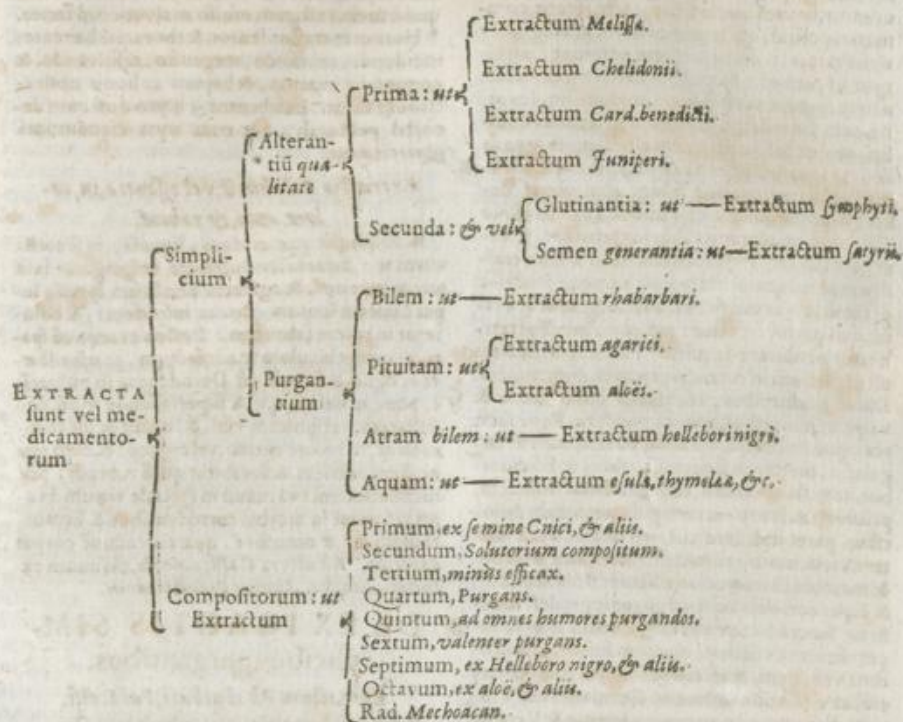 EXTRACTA
sunt vel me-
dicamento-
rum
Simpli-
cium
Alteran-
tiū qua-
litate
Prima: ut
Extractum Melissæ.
Extractum Chelidonii.
Extractum Card. benedicti.
Extractum Juniperi.
Secunda: & vel
Glutinantia: ut — Extractum symphyti.
Semen generantia: ut — Extractum satyrii.
Purgan-
tium
Bilem: ut — Extractum rhabarbari.
Pituitam: ut
Extractum agarici.
Extractum aloës.
Atram bilem: ut — Extractum hellebori nigri.
Aquam: ut — Extractum esulæ, thymeleæ, &c.
Compositorum: ut
Extractum
Primum, ex semine Cnici, & aliis.
Secundum, Solutorium compositum.
Tertium, minùs efficax.
Quartum, Purgans.
Quintum, ad omnes humores purgandos.
Sextum, valenter purgans.
Septimum, ex Helleboro nigro, & aliis.
Octavum, ex aloë, & aliis.
Rad. Mechoacan.